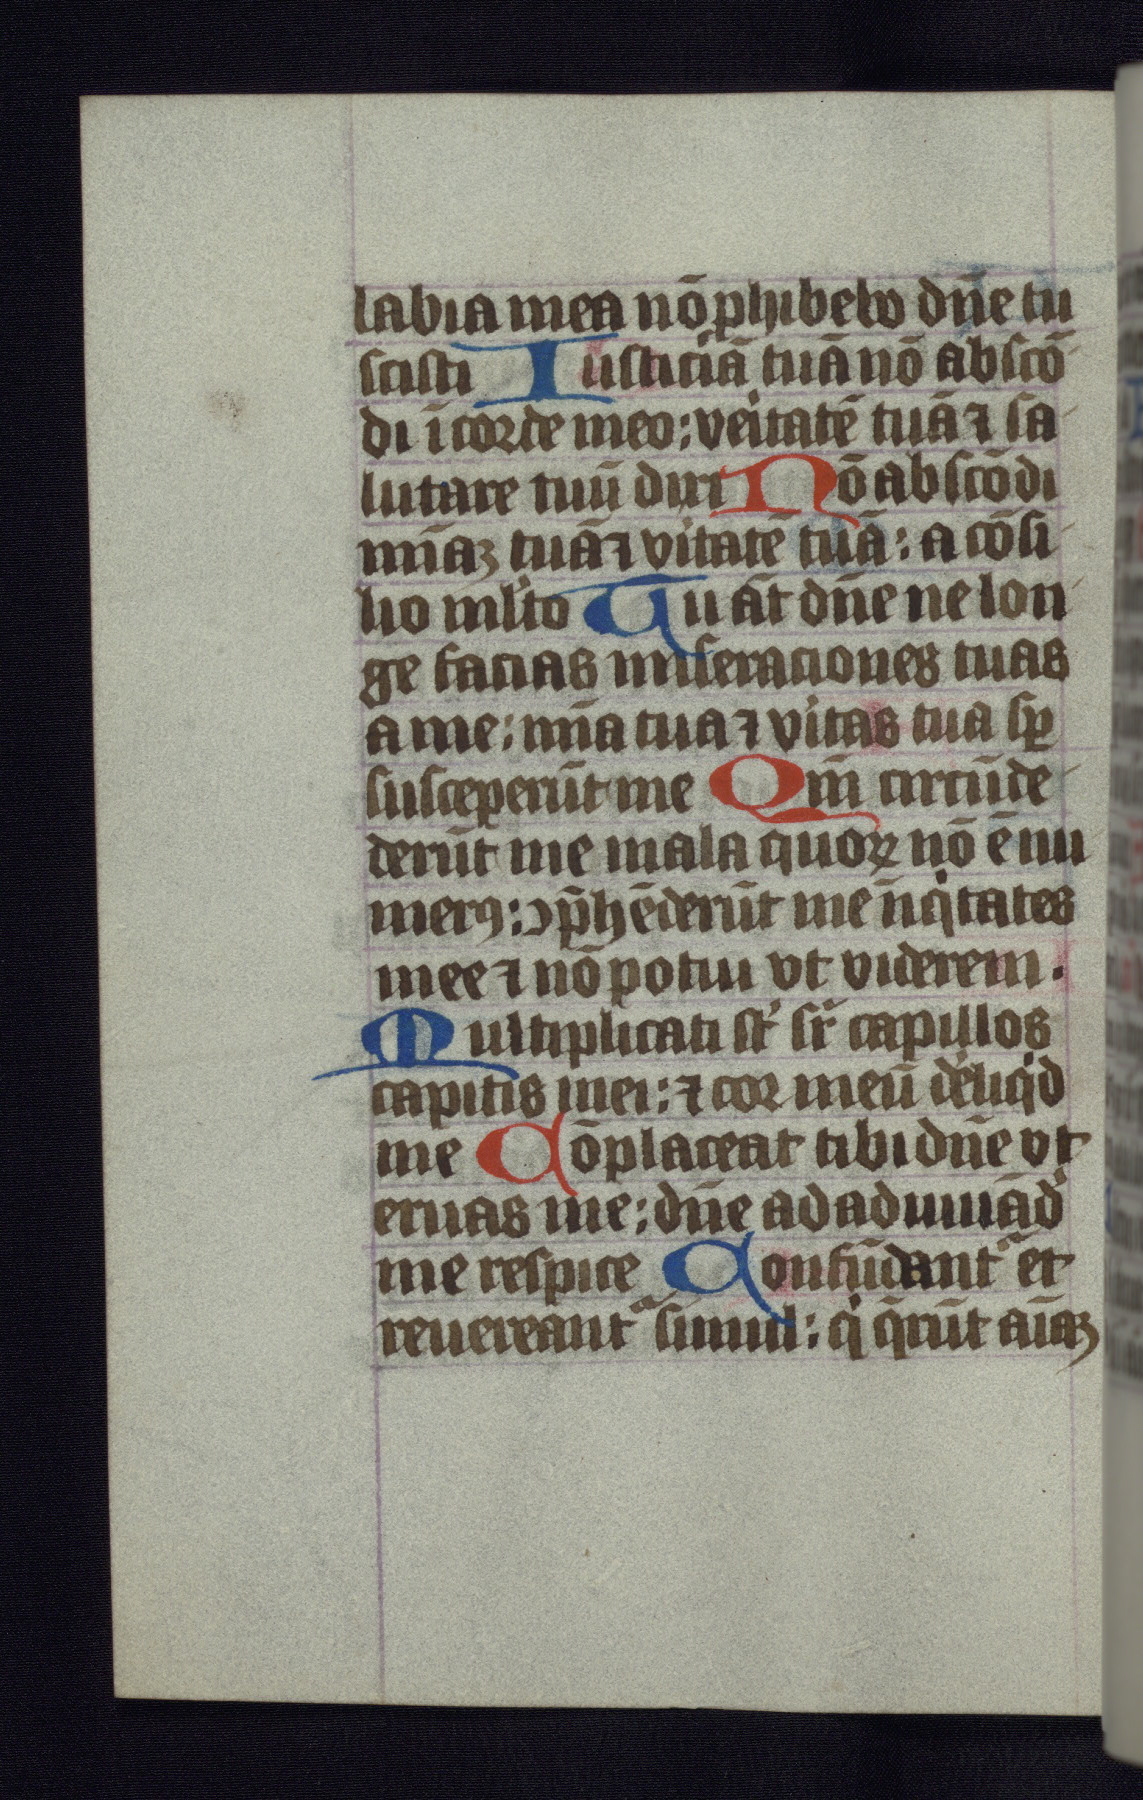 labia mea nō ꝓhibebo dn̄e tu
scisti Iusticiā tuā nō abscō
di ī corde meo: veͥtatē tuā ⁊ sa
lutare tuū dixi Nō abscōdi
mīaꝫ tuā ⁊ vͥitatē tuā: a cōsi
lio ml̄to Tu āt dn̄e ne lon
ge facias miseraciones tuas
a me: mīa tua ⁊ vͥitas tua sp̄
susceꝑerūt me Qm̄ circūde
derūt me mala quoꝝ nō ē nu
merꝰ: ꝯp̄hēderūt me īiqͥtates
mee ⁊ nō potui vt viderem.
Multiplicati st̄ sr̄ capillos
capitis mei: ⁊ cor meū deliqͥd
me Cōplaceat tibi dn̄e vt
eruas me: dn̄e ad adiuuād̄
me respice Confūdantᷣ et
reuereantᷣ simul: qͥ q̄rūt aīaꝫ